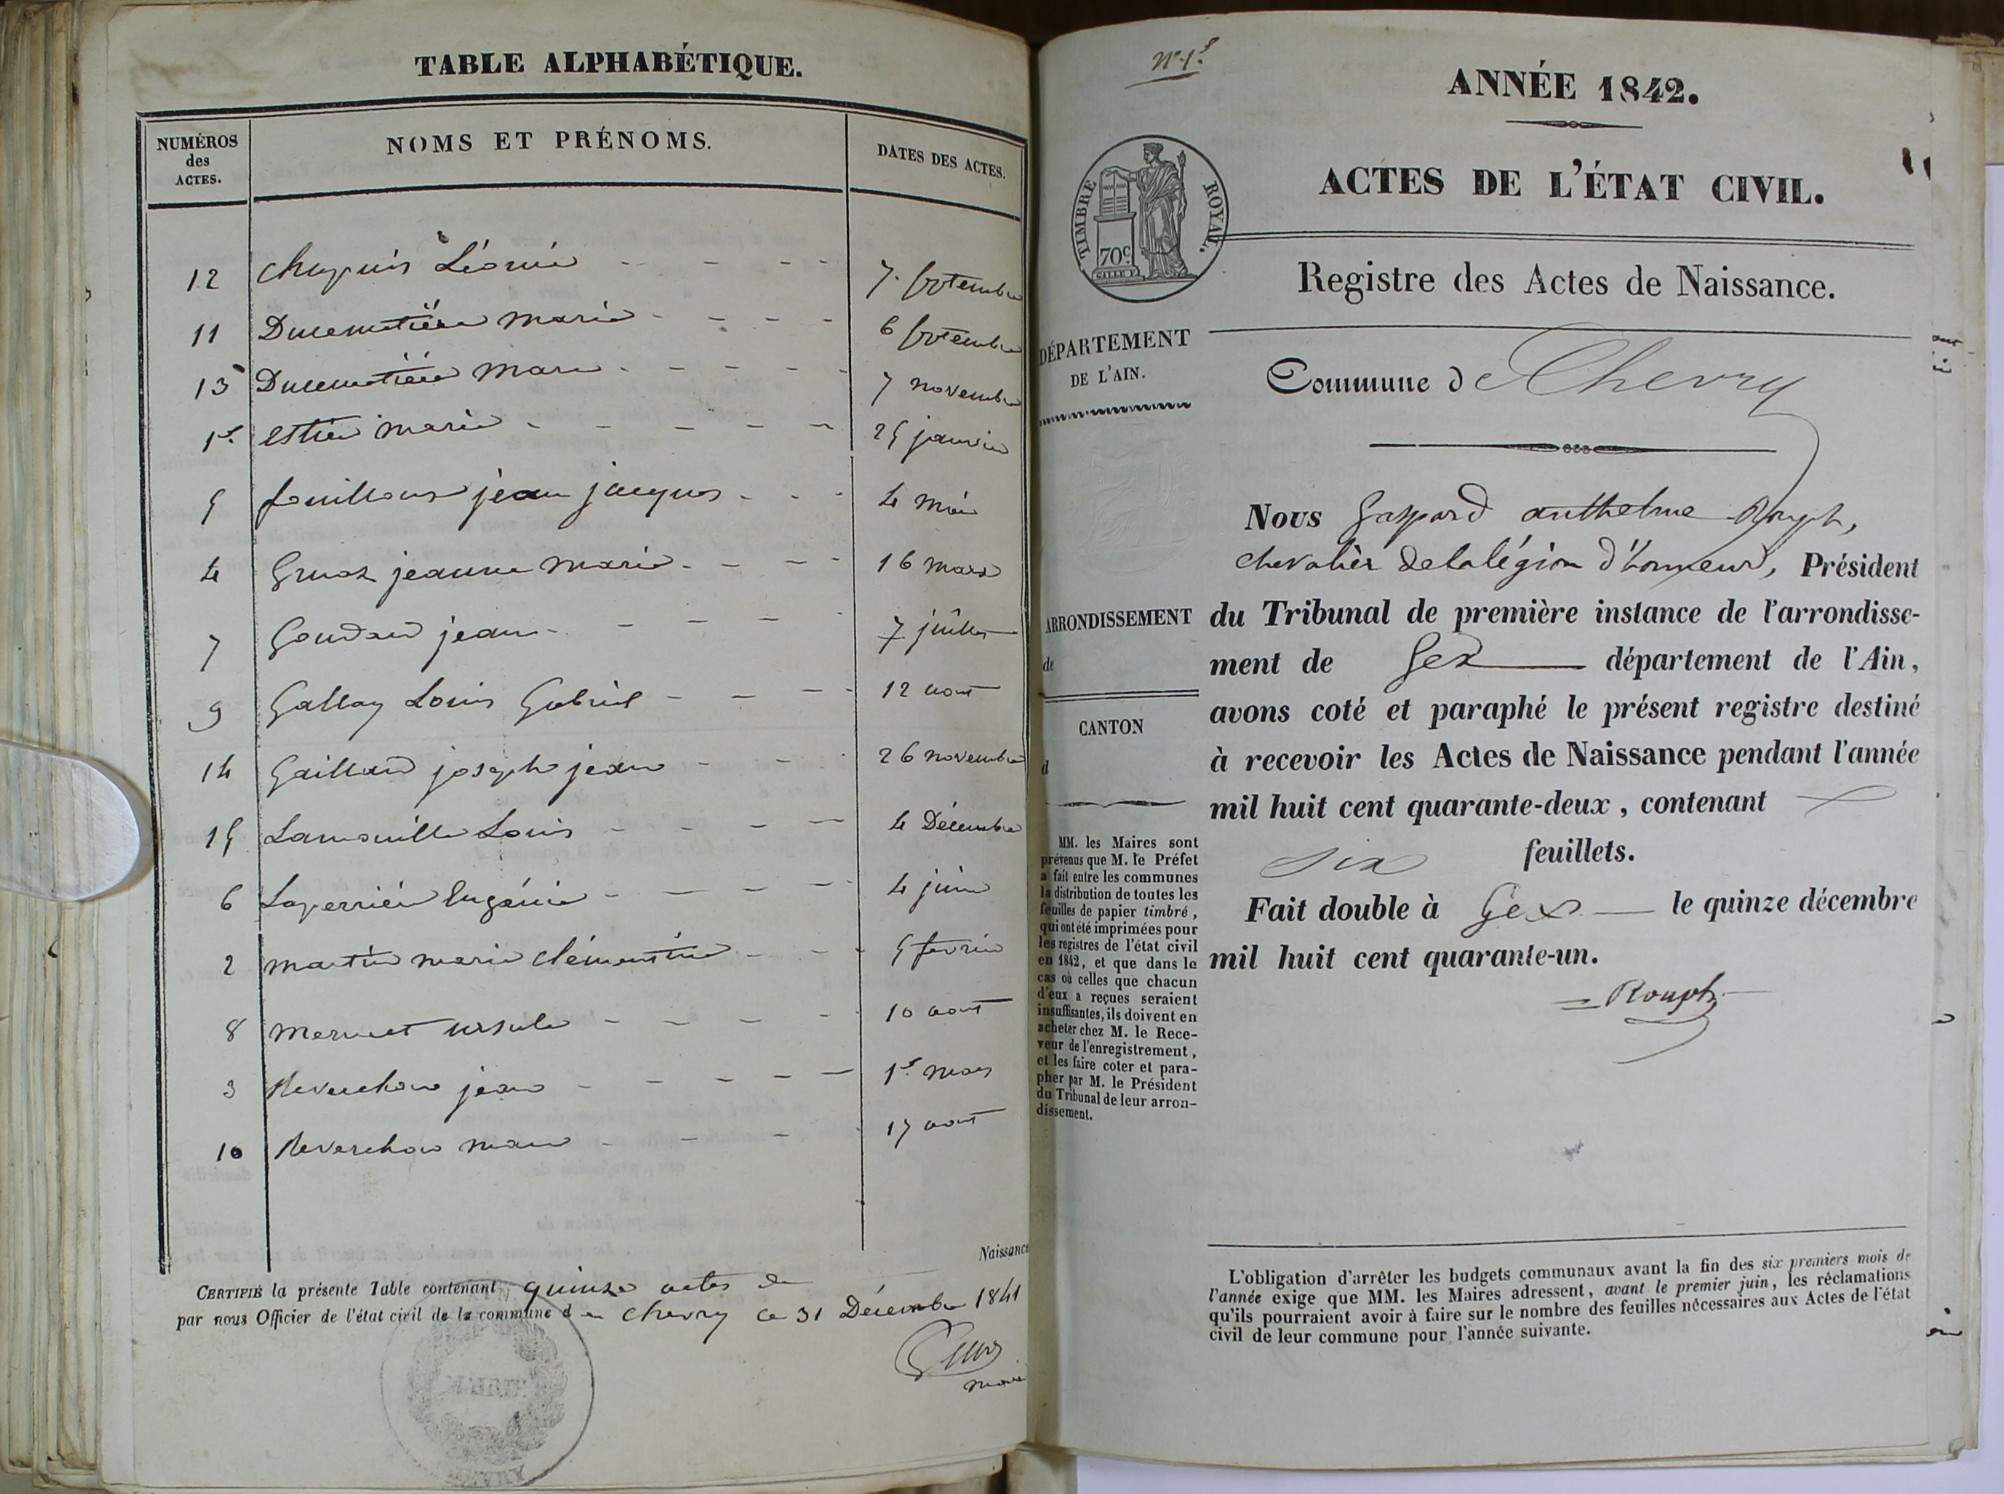 TABLE ALPHABÉTIQUE.
NUMÉROS des ACTES.
NOMS ET PRÉNOMS.
DATES DES ACTES.
12 chapuis Léonie 7 septembre
11 Ducemetière marie 6 septembre
13 Ducemetière marie 7 novembre
1er estier marie 25 janvier
5 fouilloux jean jacques 4 mai
4 Gruaz jeanne marie 16 mars
7 Goudard jean 7 juillet
9 Gallay Louis Gabriel 12 aout
14 Gaillard joseph jean 26 novembre
15 Lamouille Louis 4 Décembre
6 Laperrière Eugénie 4 juin
2 martin marie clémentine 5 fevrier
8 mermet ursule 10 aout
3 Reverchon jean 1er mars
10 Reverchon marie 17 aout
Naissance
CERTIFIÉ la présente Table contenant quinze actes de
par nous Officier de l'état civil de la commune d e chevry ce 31 Décembre 1841
Gruaz
maire
MAIRIE
N° 1er
ANNÉE 1842.
ACTES DE L'ÉTAT CIVIL.
TIMBRE ROYAL.
70c
Registre des Actes de Naissance.
DÉPARTEMENT
DE L'AIN.
Commune de Chevry
ARRONDISSEMENT
de
CANTON
d
MM. les Maires sont
prévenus que M. le Préfet
a fait entre les communes
la distribution de toutes les
feuilles de papier timbré,
qui ont été imprimées pour
les registres de l'état civil
en 1842, et que dans le
cas où celles que chacun
d'eux a reçues seraient
insuffisantes, ils doivent en
acheter chez M. le Rece-
veur de l'enregistrement,
et les faire coter et para-
pher par M. le Président
du Tribunal de leur arron-
dissement.
Nous Gaspard anthelme Rouph,
chevalier de la légion d'honneur, Président
du Tribunal de première instance de l'arrondisse-
ment de Gex département de l'Ain,
avons coté et paraphé le présent registre destiné
à recevoir les Actes de Naissance pendant l'année
mil huit cent quarante-deux, contenant
six feuillets.
Fait double à Gex le quinze décembre
mil huit cent quarante-un.
Rouph
L'obligation d'arrêter les budgets communaux avant la fin des six premiers mois de
l'année exige que MM. les Maires adressent, avant le premier juin, les réclamations
qu'ils pourraient avoir à faire sur le nombre des feuilles nécessaires aux Actes de l'état
civil de leur commune pour l'année suivante.